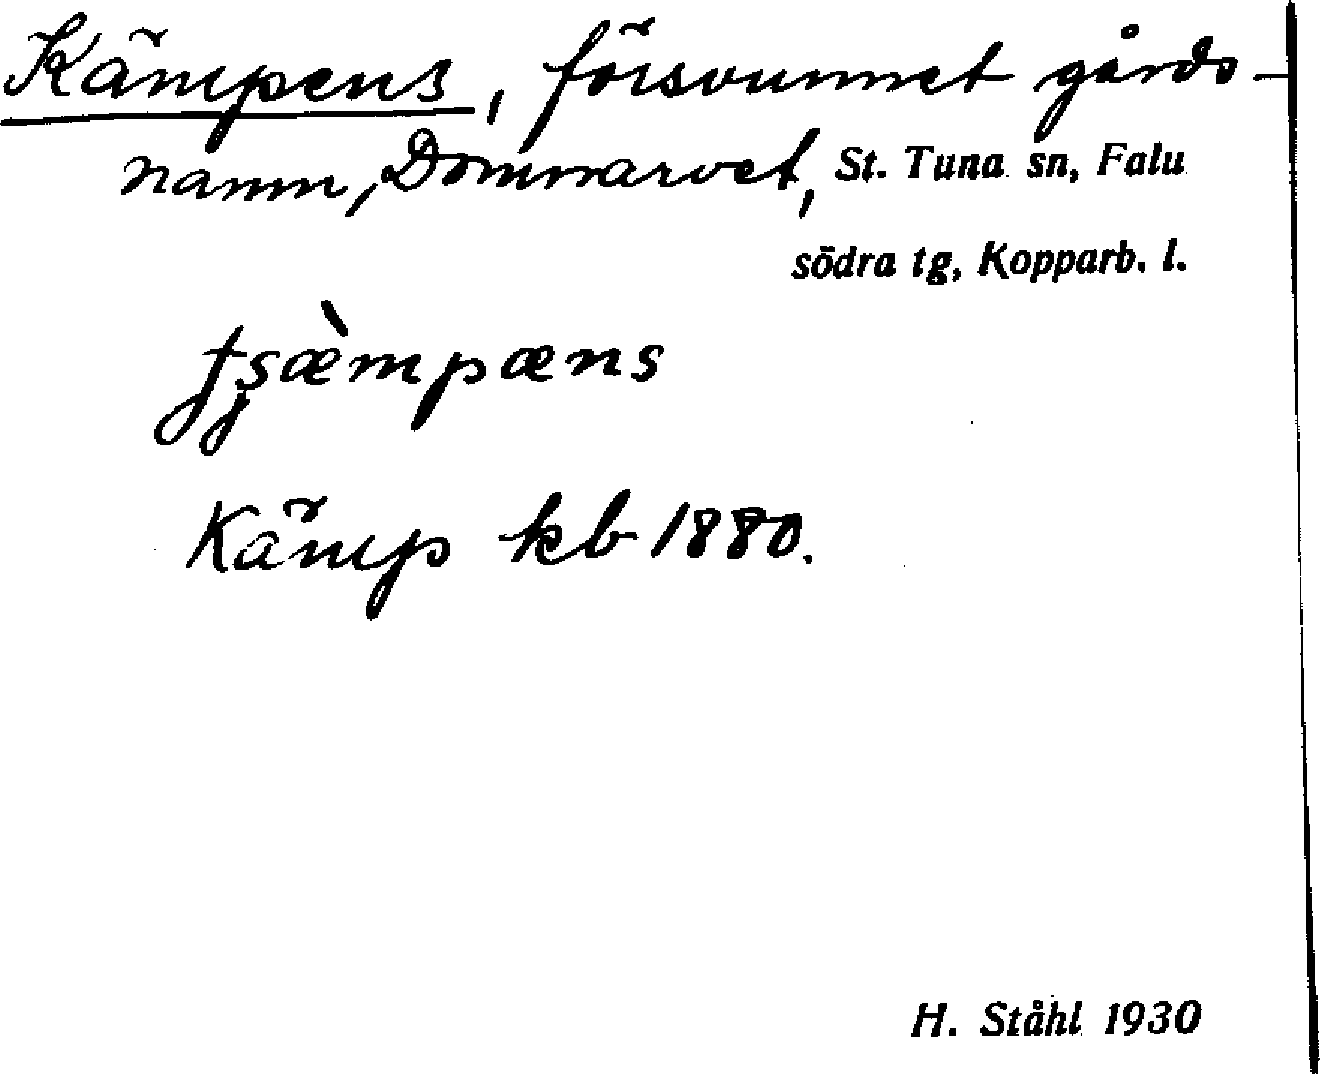 Kämpens, försvunnet gårds-
namn, Domnarvet, St. Tuna sn, Falu
södra tg, Kopparb. l.
Kämp kb 1880.
H. Ståhl 1930